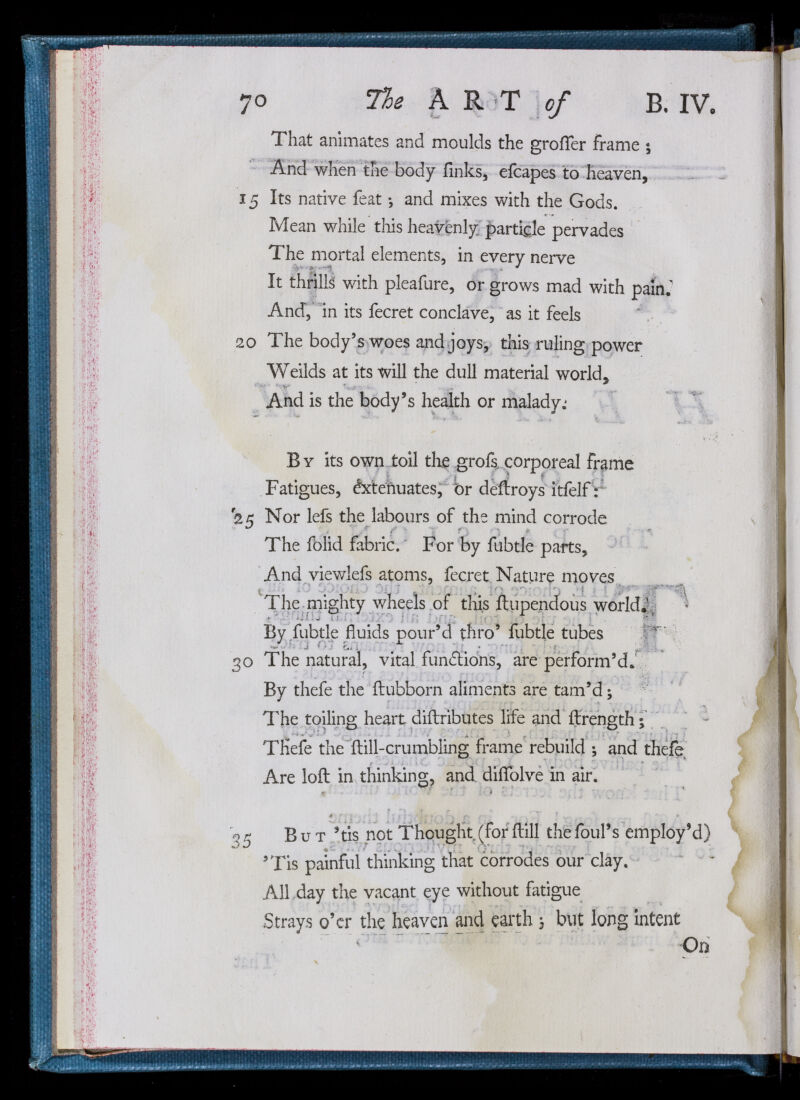 70 The ART of B. IV.
That animates and moulds the groſſer frame ;
And when the body ſinks, eſcapes to heaven,
15 Its native ſeat ; and mixes with the Gods.
Mean while this heavenly particle pervades
The mortal elements, in every nerve
It thrills with pleaſure, or grows mad with pain.
And, in its ſecret conclave, as it feels
20 The body's woes and joys, this ruling power
Weilds at its will the dull material world,
And is the body's health or malady.
BY its own toil the groſs corporeal frame
Fatigues, extenuates, or deſtroys itſelf :
25 Nor leſs the labours of the mind corrode
The ſolid fabric. For by ſubtle parts,
And viewleſs atoms, ſecret Nature moves
The mighty wheels of this ſtupendous world.
By ſubtle fluids pour'd thro' ſubtle tubes
30 The natural, vital functions, are perform'd.
By theſe the ſtubborn aliments are tam'd ;
The toiling heart diſtributes life and ſtrength ;
Theſe the ſtill-crumbling frame rebuild ; and theſe
Are loſt in thinking, and diſſolve in air.
35 BUT 'tis not Thought (for ſtill the ſoul's employ'd)
'Tis painful thinking that corrodes our clay.
All day the vacant eye without fatigue
Strays o'er the heaven and earth ; but long intent
On